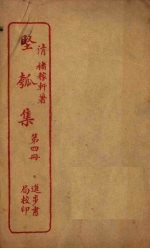 清 褚稼軒著
堅瓠集
第四冊
進步書局校印